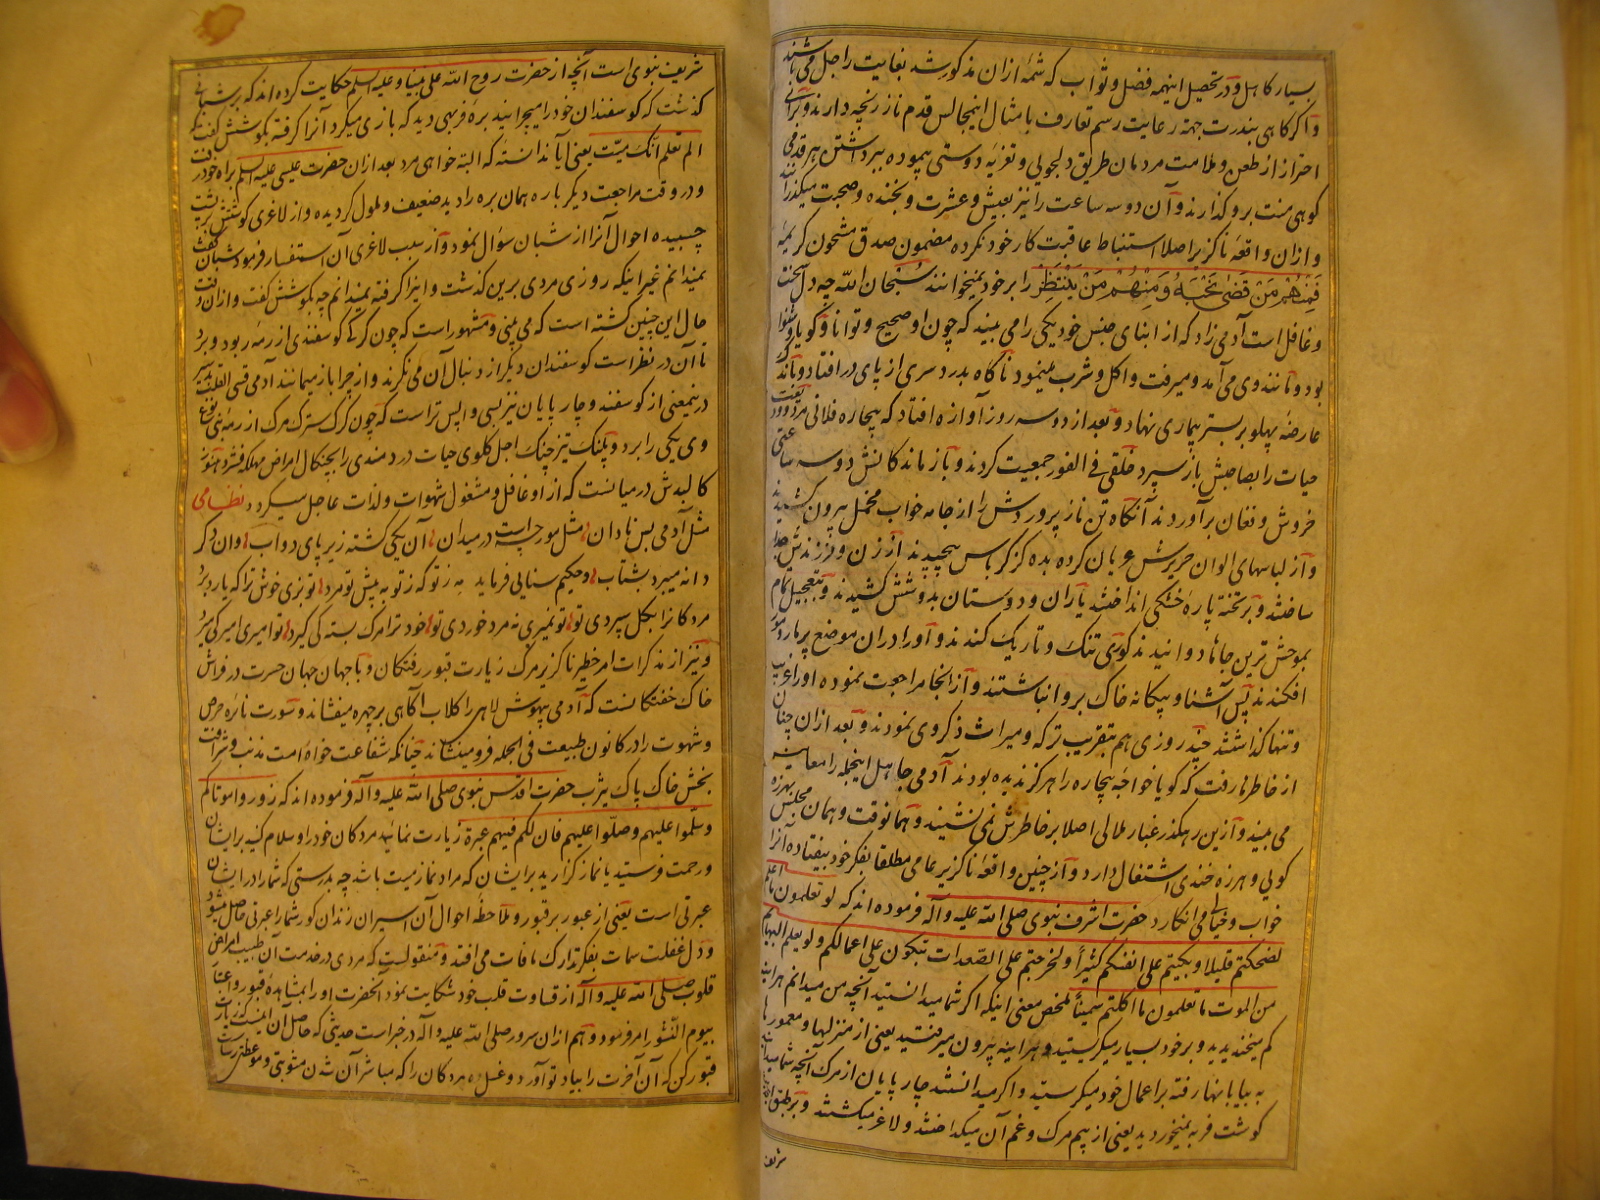 بسیار کاهل و در تحصیل اینهمه فضل و ثواب که شمهٔ ازان مذکور شد بغایت راجل می باشند
و اگر کاهی بندرت جهة رعایت رسم تعارف با مثال اینمجالس قدم ناز رنجه دارند و برای
احتراز از طعن و ملامت مردمان طریق دلجویی و تعزیه دوستی پیموده ببرداشتن هر قدمی
کوهی منت برو گذارند و آن دو سه ساعت را نیز بعیش و عشرت و بخنده و صحبت میگذرانند
و ازان واقعهٔ ناگزیر اصلا استنباط عاقبت کار خود نکرده مضمون صدق مشحون کریمهٔ
فَمِنْهُمْ مَنْ قَضىٰ نَحْبَهُ وَمِنْهُمْ مَنْ يَنْتَظِرُ را بر خود نمیخوانند سبحان الله چه دل سخت
و غافل است آدمی زاد که از ابنای جنس خود یکی را می بیند که چون او صحیح و توانا و گویا و شنوا
بود و مانند وی می آمد و میرفت و اکل و شرب مینمود ناگاه بدرد سری از پای در افتاد و باندک
عارضهٔ پهلو بر بستر بیماری نهاد و بعد از دو سه روز آوازه افتاد که بیچاره فلانی مرد و ودیعت
حیات را بصاحبش باز سپرد خلقی فی الفور جمعیت کردند و بازماندگانش دو سه ساعتی
خروش و فغان برآوردند آنگاه تن ناز پروردش را از جامه خواب مخمل بیرون کشیدند
و از لباسهای الوان حریرش عریان کرده بده گز کرباس پیچیدند از زن و فرزندش جدا
ساختند و بر تخته پارهٔ خشکی انداختند یاران و دوستان بدوشش کشیدند و بتعجیل تمام
بموحش ترین جاها دوانیدند گوری تنگ و تاریک کندند و او را دران موضع پر مار و مور
افکندند پس آشنا و بیگانه خاک برو انباشتند و از انجا مراجعت نموده او را غریب
و تنها گذاشتند چند روزی هم بتقریب ترکه و میراث ذکر وی نمودند و بعد ازان چنان
از خاطرها رفت که گویا خواجه بیچاره را هرگز ندیده بودند آدمی جاهل اینجمله را معاینه
می بیند و ازین رهگذر غبار ملالی اصلا بر خاطرش نمی نشیند و همانوقت و همان مجلس بهرزه
گویی و هرزه خندی اشتغال دارد و از چنین واقعهٔ ناگزیر عامی مطلقا بفکر خود نیفتاده آنرا
خواب و خیالی می انگارد حضرت اشرف نبوی صلی الله علیه و آله فرموده اند که لو تعلمون ما اعلم
لضحکتم قلیلا و بکیتم علی انفسکم کثیرا و لخرجتم علی الصعدات تبکون علی اعمالکم و لو یعلم البهایم
من الموت ما تعلمون ما اکلتم سمینا ملخص معنی اینکه اگر شما میدانستید آنچه من میدانم هر اینه
کم میخندیدید و بر خود بسیار میگریستید و هر اینه بیرون میرفتید یعنی از منزلها و معمورها
به بیابانها رفته بر اعمال خود میگریستید و اگر میدانستند چارپایان از مرگ آنچه شما میدانید
گوشت فربه نمیخوردید یعنی از بیم مرگ و غم آن میگداختند و لاغر میگشتند و بر طبق
شریف
شریف نبوی است آنچه از حضرت روح الله علی نبینا و علیه السلم حکایت کرده اند که بر شبانی
گذشت که گوسفندان خود را میچرانید برهٔ فربهی دید که بازی میکرد آنرا گرفته بگوشش گفت
الم تعلم انک میت یعنی آیا ندانستهٔ که البته خواهی مرد بعد ازان حضرت عیسی علیه السلم براه خود رفت
و در وقت مراجعت دیگر باره همان بره را دید ضعیف و ملول گردیده و از لاغری گوشتش بر پشت
چسبیده احوال آنرا از شبان سؤال نمود و از سبب لاغری آن استفسار فرمود شبان گفت
نمیدانم غیر اینکه روزی مردی برین گذشت و اینرا گرفته نمیدانم چه بگوشش گفت و ازان وقت
حال این چنین گشته است که می بینی و مشهور است که چون گرگی گوسفندی از رمه ربود و برد
تا آن در نظر است گوسفندان دیگر از دنبال آن می نگرند و از چرا باز میمانند آدمی قسی القلب
درینمعنی از گوسفند و چارپایان نیز بسی واپس تر است که چون گرگ سترگ مرگ از رمهٔ بنی نوع
وی یکی را برد و پلنگ تیز چنگ اجل گلوی حیات دردمندی را بچنگال امراض مهلکه فشرد هنوز
کالبدش در میانست که از او غافل و مشغول شهوات و لذات عاجل میگردد نظامی
مثل آدمی بس نادان مثل مورچه است در میدان آن یکی گشته زیر پای دواب وان دگر
دانه میبرد بشتاب و حکیم سنایی فرماید به ز تو که ز تو به پیش تو مرد تو بزی خوش ترا که یارد برد
مردگانرا بگل سپردی تو تو نمیری نه مرد خوردی تو خود ترا مرگ بسته کی گیرد تو امیری امیر کی میرد
و نیز از مذکرات امر خطیر ناگزیر مرگ زیارت قبور رفتگان و با جهان جهان حسرت در فراش
خاک خفتگانست که آدمی بیهوش لاهی را گلاب آگاهی بر چهره میفشاند و سورت نایرهٔ حرص
و شهوت را در کانون طبیعت فی الجمله فرو مینشاند چنانکه شفاعت خواه امت مذنب و شرافت
بخش خاک پاک یثرب حضرت اقدس نبوی صلی الله علیه و آله فرموده اند که زوروا موتاکم
وسلّموا علیهم وصلّوا علیهم فان لکم فیهم عبرة زیارت نمائید مردگان خود را و سلام کنید بر ایشان
و رحمت فرستید یا نماز گزارید بر ایشان که مراد نماز میت باشد چه بدرستی که شما را در ایشان
عبرتی است یعنی از عبور بر قبور و ملاحظهٔ احوال آن اسیران زندان گور شما را عبرتی حاصل میشود
و دل غفلت سمات بفکر تدارک مافات می افتد و منقولست که مردی در خدمت آن طبیب امراض
قلوب صلی الله علیه و آله از قساوت قلب خود شکایت نمود آنحضرت او را بمشاهدهٔ قبور و اعتبار
بیوم النشور امر فرمود و هم ازان سرور صلی الله علیه و آله در خبر است حدیثی که حاصل آن اینست که زیارت
قبور کن که آن آخرت را بیاد تو آورد و غسل ده مردگان را که مباشر آن شدن مثوبتی و موعظتی رساست